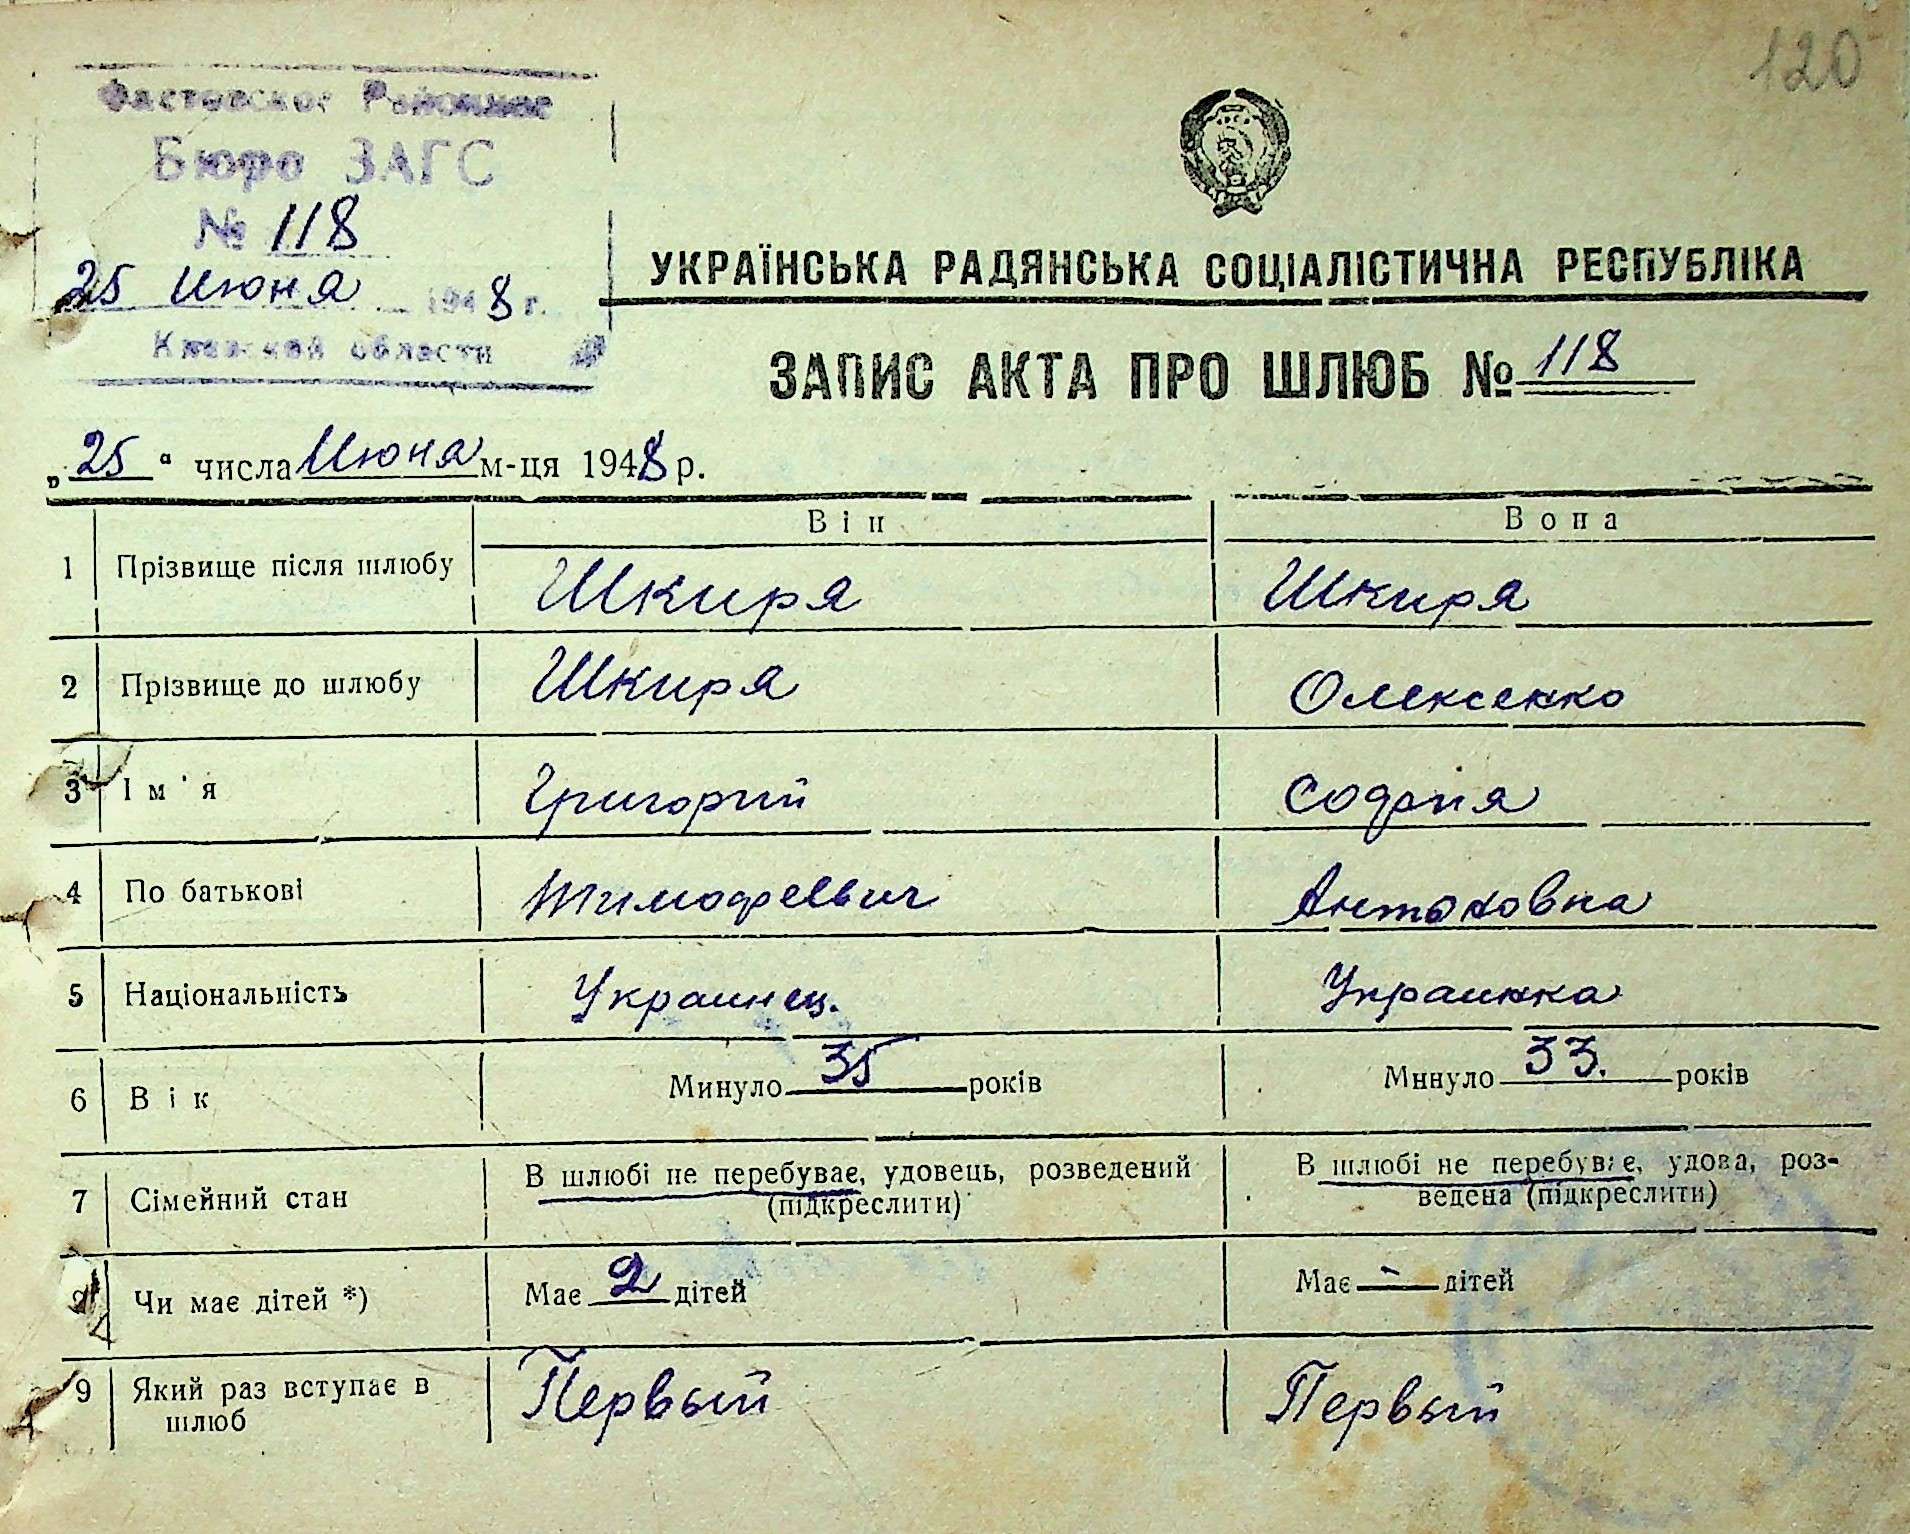 120
Фастовское Районное
Бюро ЗАГС
№ 118
25 Июня 1948 г.
Киевской области
УКРАЇНСЬКА РАДЯНСЬКА СОЦІАЛІСТИЧНА РЕСПУБЛІКА
ЗАПИС АКТА ПРО ШЛЮБ № 118
„25“ числа Июня м-ця 1948 р.
Він Вона
1 Прізвище після шлюбу Шкиря Шкиря
2 Прізвище до шлюбу Шкиря Олексенко
3 Ім'я Григорий София
4 По батькові Тимофеевич Антоновна
5 Національність Украинец. Украинка
6 Вік Минуло 35 років Минуло 33. років
7 Сімейний стан В шлюбі не перебуває, удовець, розведений (підкреслити) В шлюбі не перебуває, удова, роз-
ведена (підкреслити)
8 Чи має дітей *) Має 2 дітей Має - дітей
9 Який раз вступає в Первый Первый
шлюб